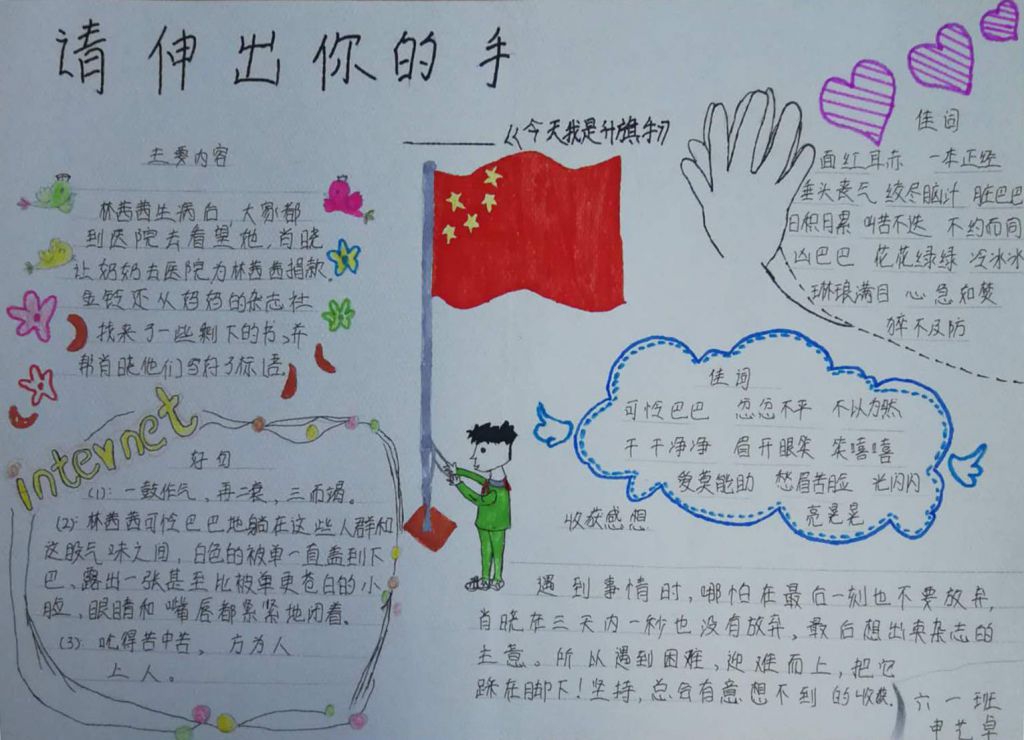 请伸出你的手
《今天我是升旗手》
主要内容
林茜茜生病后，大家都
到医院去看望她，肖晓
让奶奶去医院为林茜茜捐款，
金铃还从妈妈的杂志社
找来了一些剩下的书，并
帮肖晓他们写好了标语。
佳词
面红耳赤 一本正经
垂头丧气 绞尽脑汁 脏巴巴
日积月累 叫苦不迭 不约而同
凶巴巴 花花绿绿 冷冰冰
琳琅满目 心急如焚
猝不及防
佳词
可怜巴巴 忿忿不平 不以为然
干干净净 眉开眼笑 笑嘻嘻
爱莫能助 愁眉苦脸 光闪闪
亮晃晃
internet
好句
(1): 一鼓作气，再二衰，三而竭。
(2): 林茜茜可怜巴巴地躺在这些人群和
这股气味之间，白色的被单一直盖到下
巴、露出一张甚至比被单更苍白的小
脸，眼睛和嘴唇都紧紧地闭着。
(3): 吃得苦中苦，方为人
上人。
收获感想
遇到事情时，哪怕在最后一刻也不要放弃，
肖晓在三天内一秒也没有放弃，最后想出卖杂志的
主意。所以遇到困难，迎难而上，把它
踩在脚下！坚持，总会有意想不到的收获。
六一班
申艺卓